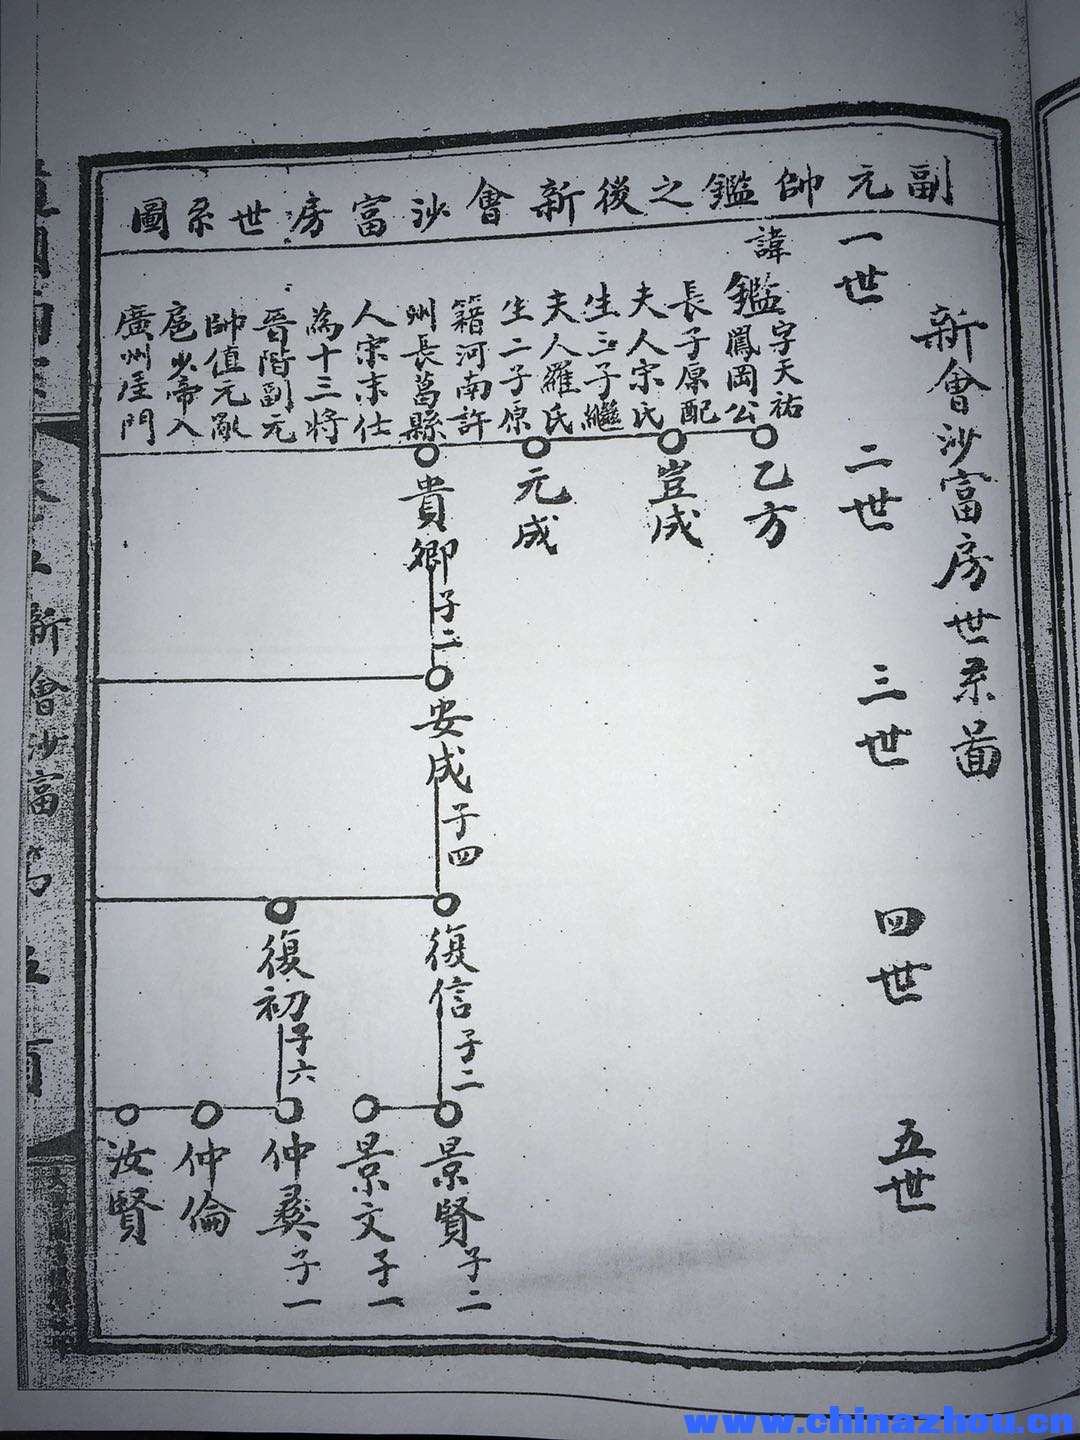 副元帥鑑之後新會沙富房世系圖
新會沙富房世系圖
一世
二世
三世
四世
五世
諱鑑字天祐
鳳岡公
長子原配
夫人宋氏
生三子繼
夫人羅氏
生二子原
籍河南許
州長葛縣
人宋末仕
為十三將
晉階副元
帥值元敵
扈少帝入
廣州厓門
乙方
豈成
元成
貴卿子二
安成子四
復信子二
復初子六
景賢子二
景文子一
仲彝子一
仲倫
汝賢
新會沙富
www.chinazhou.cn